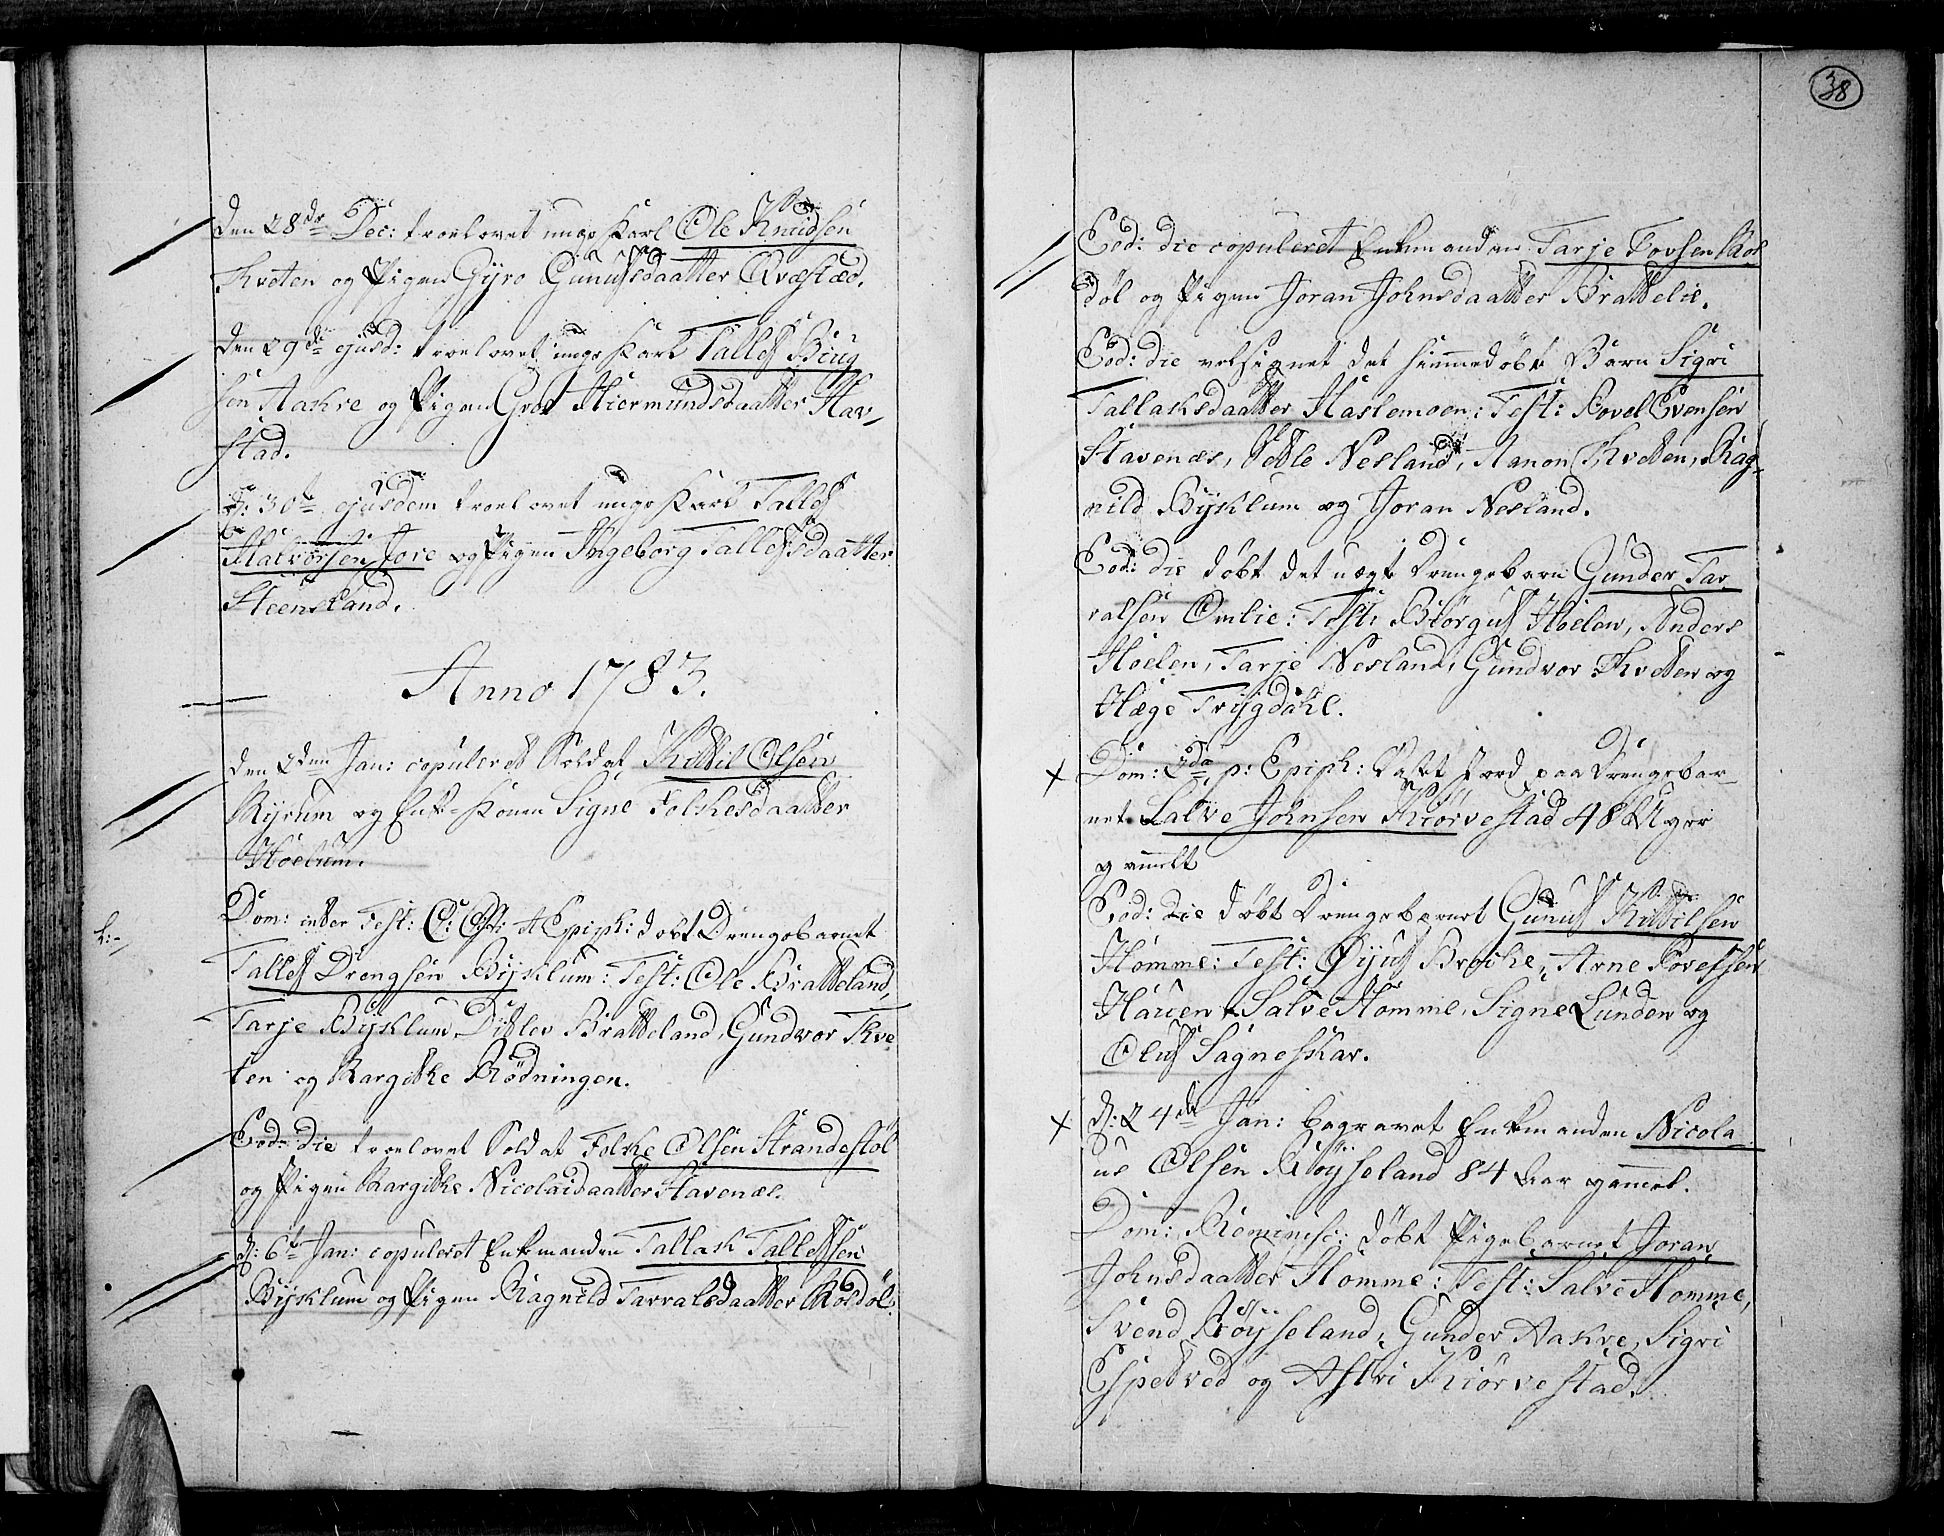 Den 28de Dec: troelovet unge Karl Ole Knudsen
Kveten og Pigen Gyro Gunufsdaatter Qvæstad.
Den 29de ejusd: troelovet unge Karl Tallef Biug
sen Aakre og Pigen Groe Hiermundsdaatter Hav,,
stad.
D: 30te ejusdem troelovet unge Karl Tallef
Halvorsen Jore og Pigen Ingeborg Tallefsdaatter
Steensland.
Anno 1783.
Den 2den Jan: copuleret Soldat Kittil Olsen
Rysum og Enke-Konen Signe Folkesdaatter
Hoelum.
Dom: inter Fest: C: Cst: & Epiph: døbt Drengebarnet
Tallef Drengsen Byklum: Test: Ole Bratteland,
Tarje Byklum, Ditlev Bratteland, Gundvor Kve
ten og Margithe Rødningen.
Eod: die troelovet Soldat Folke Olsen Strandestøl
og Pigen Margithe Nicolaidaatter Stavenæs.
D: 6te Jan: copuleret Enkemanden Tallak Tallefsen
Byklum og Pigen Ragnild Tarralsdaatter Rosdøl.
38
Eod: die copuleret Enkemanden Tarje Tovsen Ros
døl og Pigen Joran Johnsdaatter Brattelie.
Eod: die velsignet det hiemmedøbt Barn Sigri
Tallaksdaatter Haslemoen: Test: Rovel Evensen
Stavenæs, Vetle Nesland, Aanon Kvetten, Rag,,
nild Byklum og Joran Nesland.
Eod: die døbt det uægte Drengebarn Gunder Tar
ralsen Omlie: Test: Biørguf Hoelen, Anders
Hoelen, Tarje Nesland, Gundvor Kvetten og
Hæge Trygdahl.
Dom: 2da p: Epiph: kastet Jord paa Drengebar
net Salve Johnsen Kiørvestad 48 Uger
gammelt
Eod: die døbt Drengebarnet Gunuf Kittilsen
Homme: Test: Øjuf Brocke, Arne Rovelsen
Hauen, Salve Homme, Signe Lunden og
Oluf Sagneskar.
D: 24de Jan: begravet Enkemanden Nicola
us Olsen Røysseland 84 Aar gammel.
Dom: Reminisc: døbt Pigebarnet Joran
Johnsdaatter Homme: Test: Salve Homme,
Svend Røysseland, Gunder Aakre, Sigri
Espetved og Astri Kiørvestad.